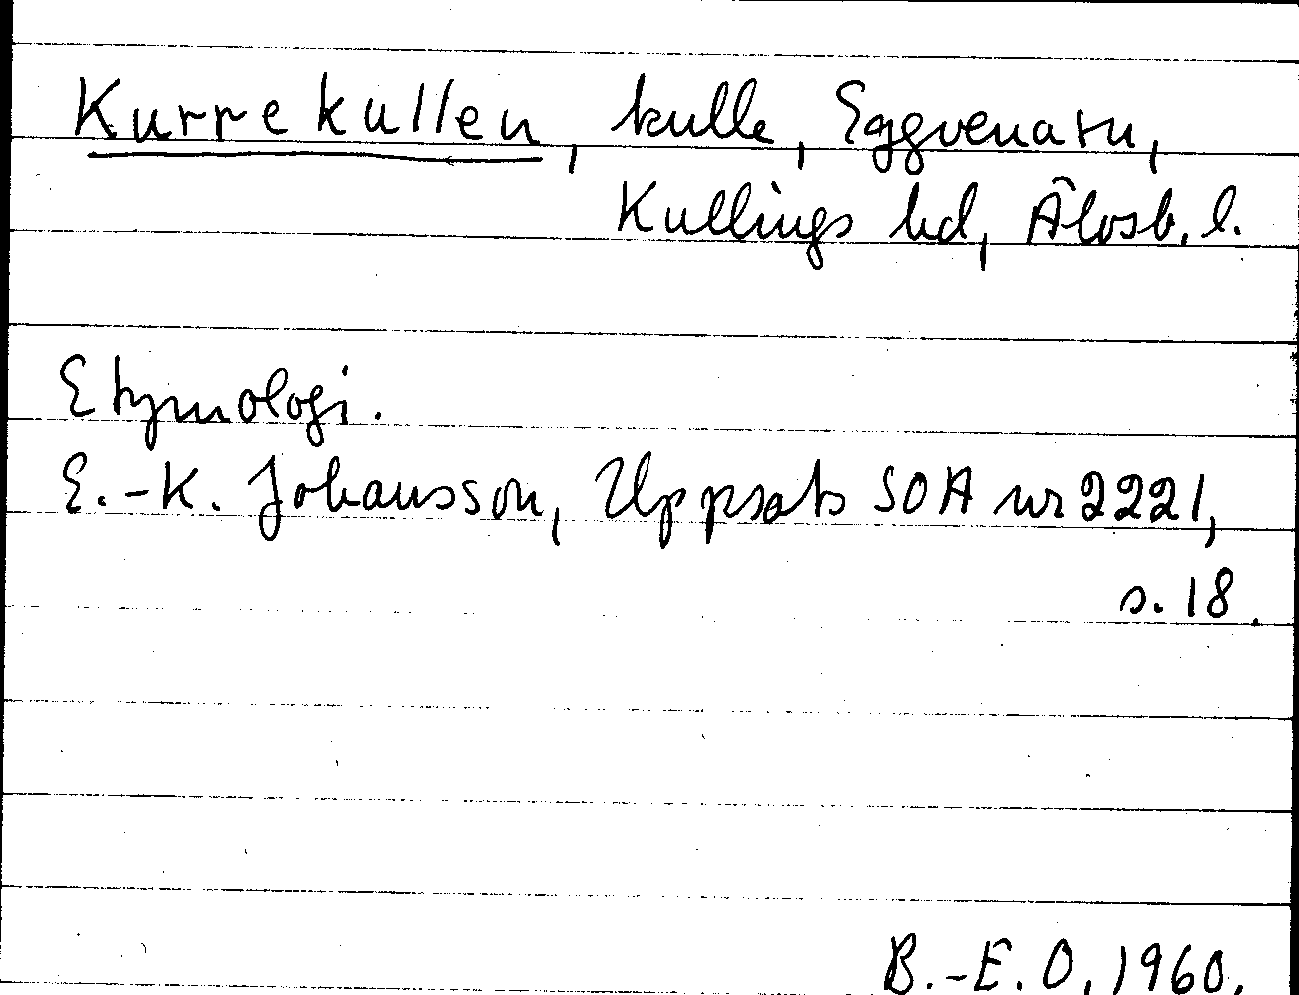 Kurrekullen, kulle, Eggvena sn,
Kullings hd, Älvsb. l.
Etymologi.
E.-K. Johansson, Uppsats SOA nr 2221,
s. 18.
B.-E. O. 1960.